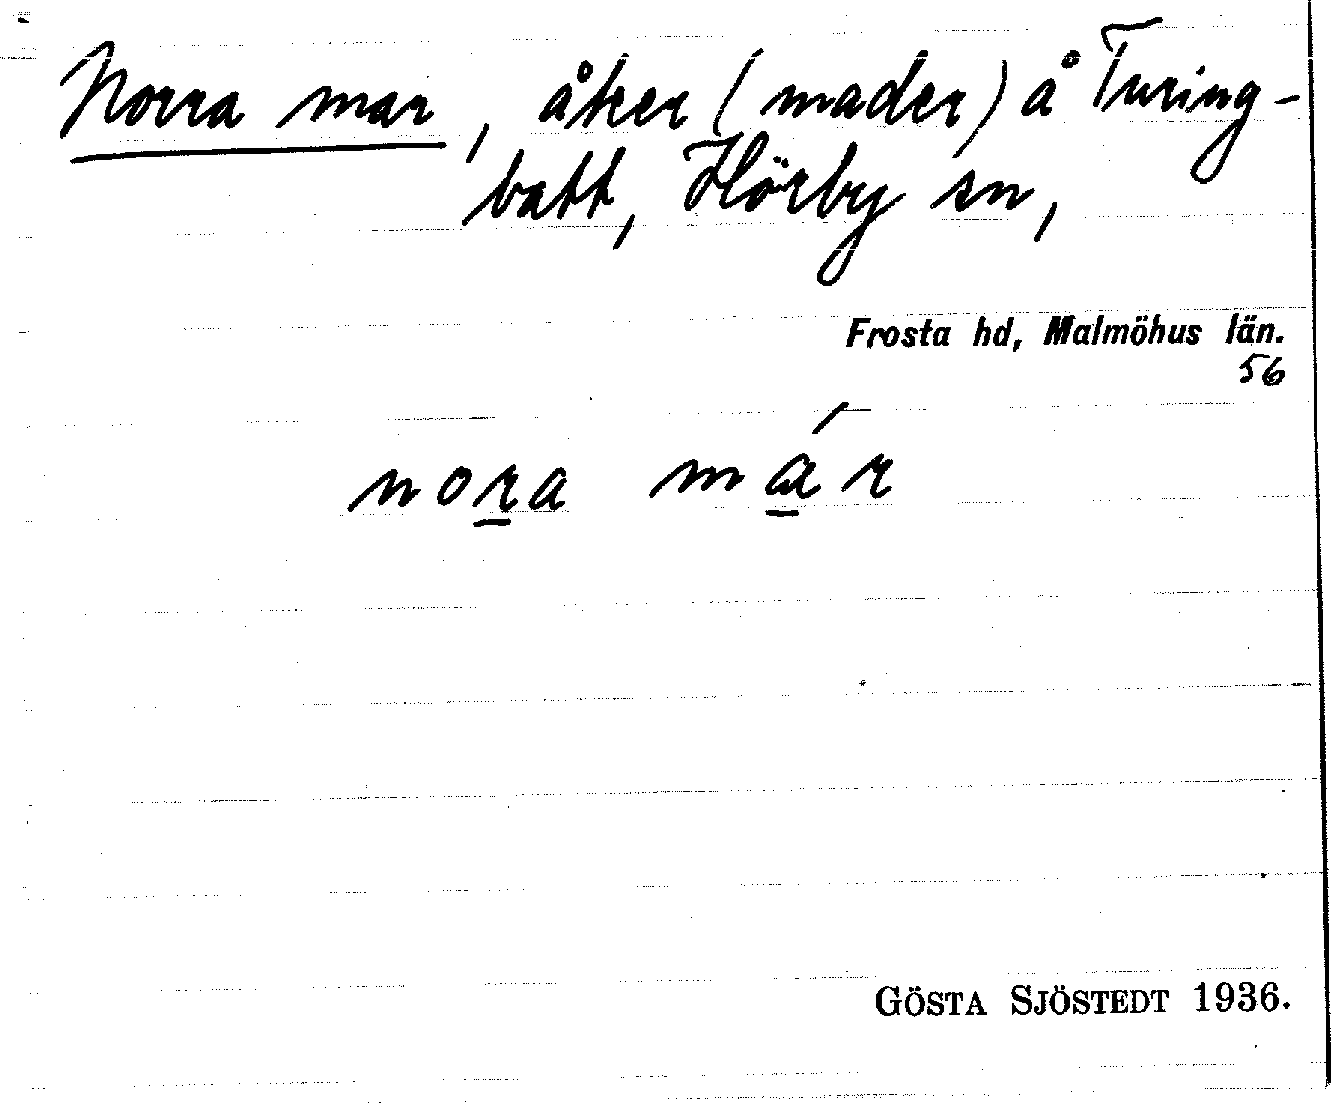 Norra mar, åker (mader) å Turing-
vatt, Hörby sn,
Frosta hd, Malmöhus län.
56
nora már
GÖSTA SJÖSTEDT 1936.